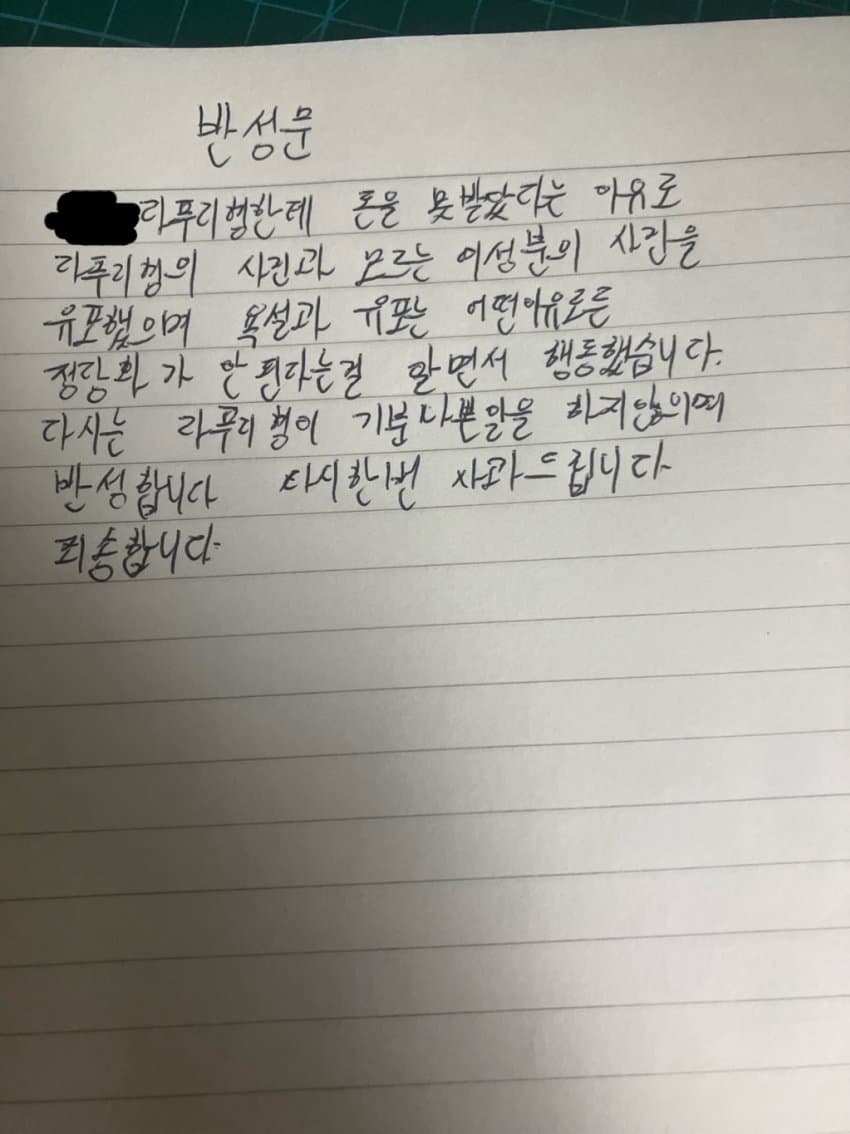 반성문
라푸리형한테 돈을 못받았다는 이유로
라푸리형의 사진과 모르는 여성분의 사진을
유포했으며 욕설과 유포는 어떤이유로든
정당화가 안된다는걸 알면서 행동했습니다.
다시는 라푸리형이 기분나쁜말을 하지않으며
반성합니다 다시한번 사과드립니다
죄송합니다.